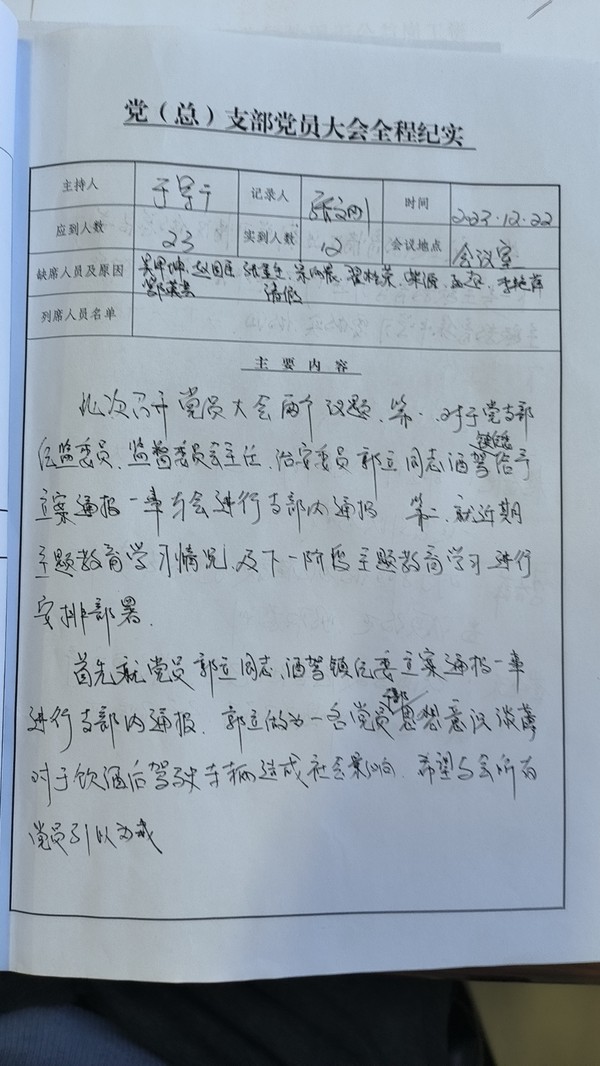 党（总）支部党员大会全程纪实
主持人 记录人 张文刚 时间 2023.12.22
应到人数 23 实到人数 12 会议地点 会议室
缺席人员及原因 赵国臣 孟超 李艳萍
请假
列席人员名单
主要内容
此次召开党员大会两个议题，第一，对于党支部
纪监委员、监督委员会主任、治安委员郭立同志酒驾给予
镇纪委
立案通报一事与会进行支部内通报 第二，就近期
主题教育学习情况，及下一阶段主题教育学习进行
安排部署.
首先就党员郭立同志，酒驾镇纪委立案通报一事
进行支部内通报. 郭立做为一名党员思想意识淡薄
干部
对于饮酒后驾驶车辆造成社会影响. 希望与会所有
党员引以为戒